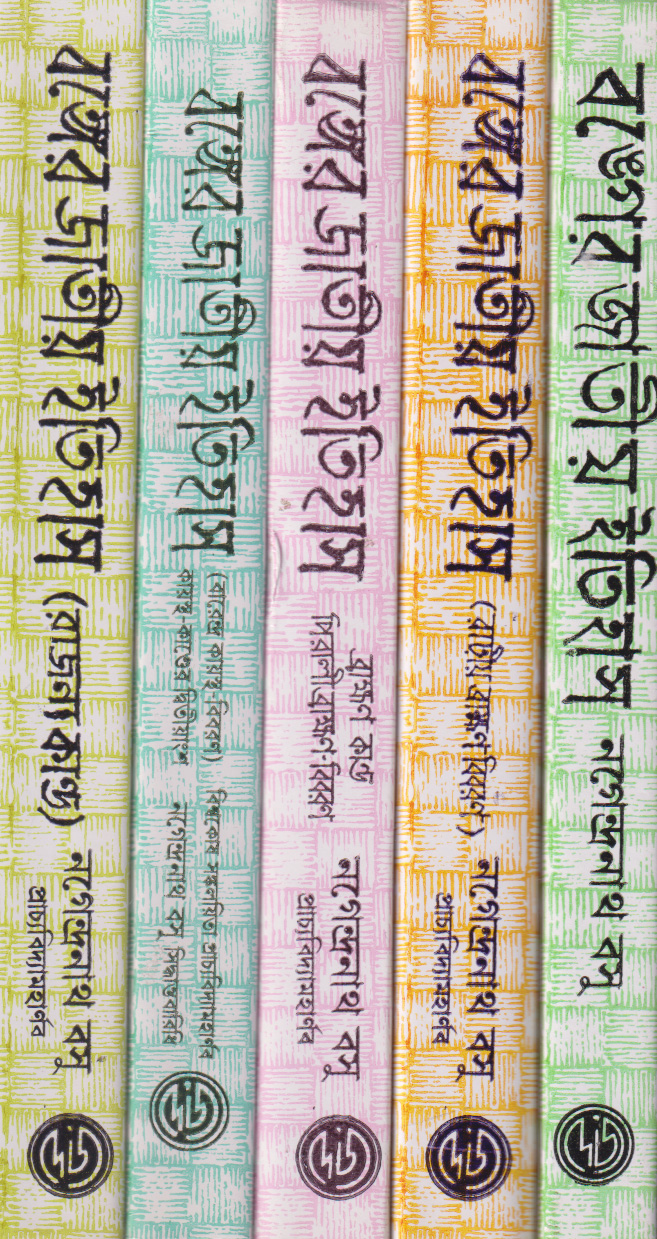 বঙ্গের জাতীয় ইতিহাস (রাজন্য কাণ্ড) নগেন্দ্রনাথ বসু
প্রাচ্যবিদ্যামহার্ণব
বঙ্গের জাতীয় ইতিহাস
(বারেন্দ্র কায়স্থ-বিবরণ)
কায়স্থ-কাণ্ডের দ্বিতীয়াংশ
বিশ্বকোষ সঙ্কলয়িতা প্রাচ্যবিদ্যামহার্ণব
নগেন্দ্রনাথ বসু সিদ্ধান্তবারিধি
বঙ্গের জাতীয় ইতিহাস
ব্রাহ্মণ কাণ্ড
পিরালী ব্রাহ্মণ-বিবরণ
নগেন্দ্রনাথ বসু
প্রাচ্যবিদ্যামহার্ণব
বঙ্গের জাতীয় ইতিহাস (রাঢ়ীয় ব্রাহ্মণ বিবরণ) নগেন্দ্রনাথ বসু
প্রাচ্যবিদ্যামহার্ণব
বঙ্গের জাতীয় ইতিহাস নগেন্দ্রনাথ বসু